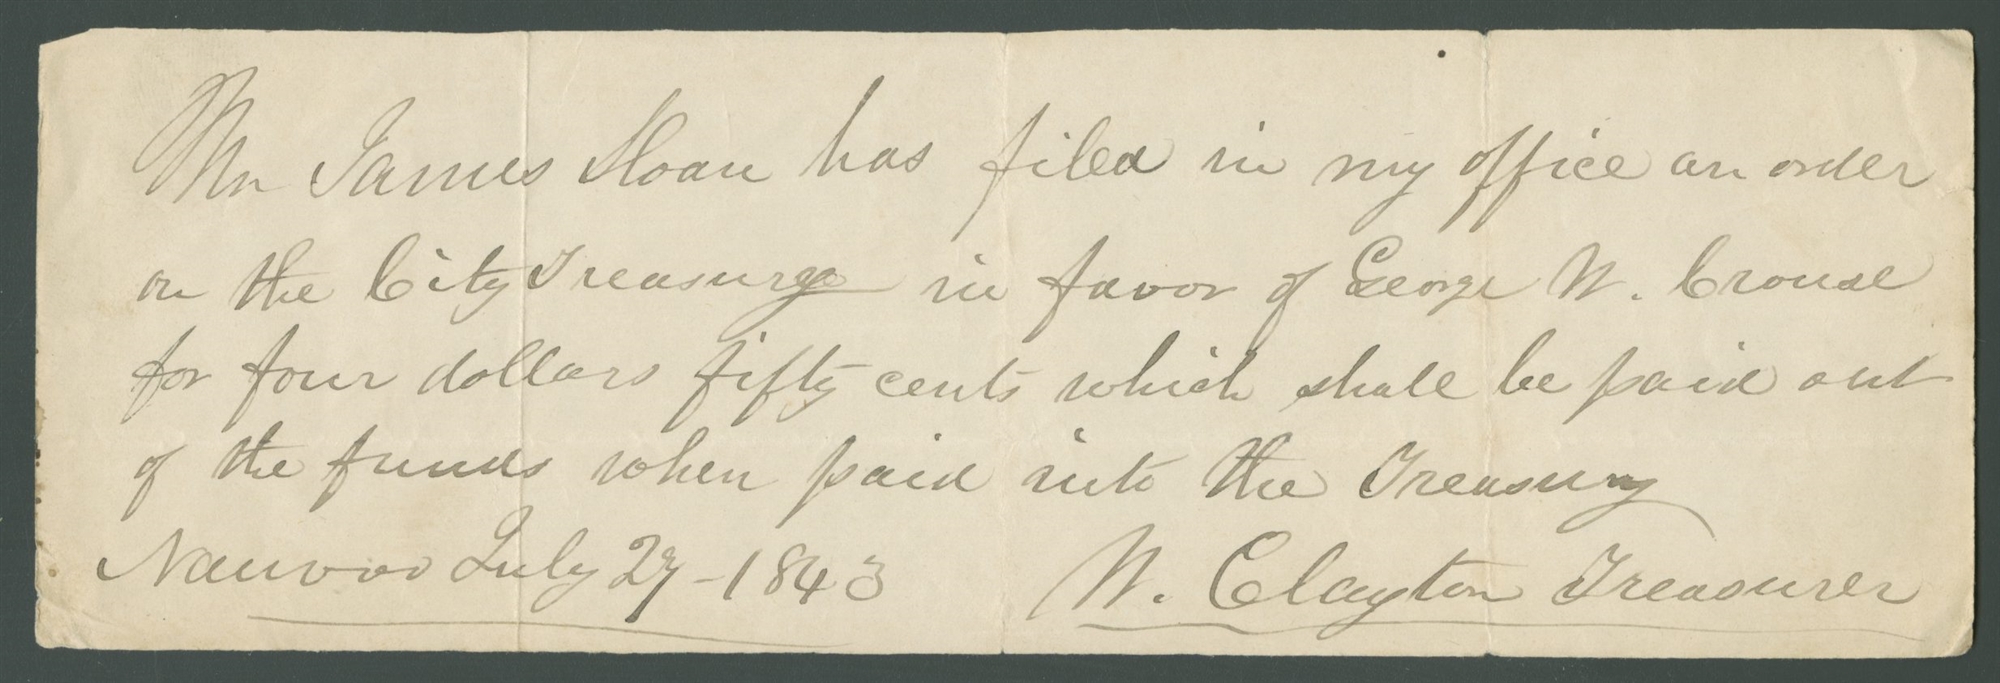 Mr James Sloan has filed in my office an order
on the City Treasurye in favor of George W. Crouse
for four dollars fifty cents which shall be paid out
of the funds when paid into the Treasury
Nauvoo July 27 - 1843 W. Clayton Treasurer